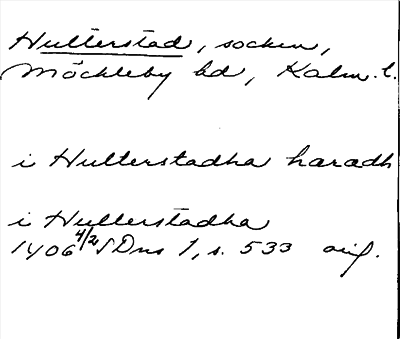 Hulterstad, socken,
Möckleby hd, Kalm. l.
i Hulterstadha haradh
i Hulterstadha
1406 4/2 SDns 1, s. 533 orig.